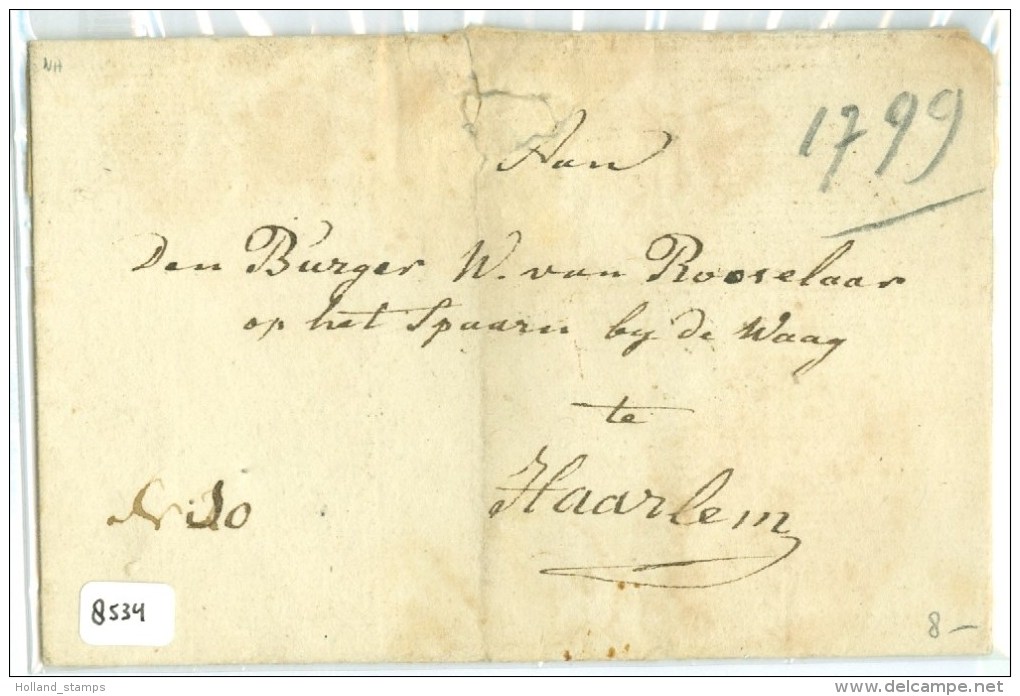 NH
1799
Aan
Den Burger W. van Rooselaar
op het Spaarn by de Waag
te
Haarlem
8534
8 –
Holland_stamps
delcampe.net